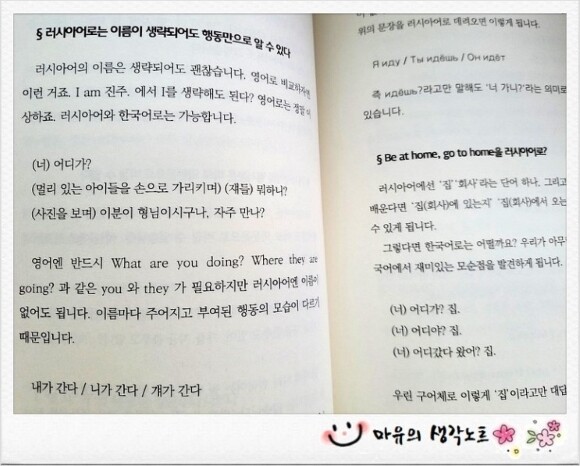 § 러시아어로는 이름이 생략되어도 행동만으로 알 수 있다
러시아어의 이름은 생략되어도 괜찮습니다. 영어로 비교하자면
이런 거죠. I am 진주. 에서 I를 생략해도 된다? 영어로는 정말 이
상하죠. 러시아어와 한국어로는 가능합니다.
(너) 어디가?
(멀리 있는 아이들을 손으로 가리키며) (쟤들) 뭐하니?
(사진을 보며) 이분이 형님이시구나, 자주 만나?
영어엔 반드시 What are you doing? Where they are
going? 과 같은 you 와 they 가 필요하지만 러시아어엔 이름이
없어도 됩니다. 이름마다 주어지고 부여된 행동의 모습이 다르기
때문입니다.
내가 간다 / 니가 간다 / 걔가 간다
위의 문장을 러시아어로 데려오면 이렇게 됩니다.
Я иду / Ты идёшь / Он идёт
즉 идёшь?라고만 말해도 '너 가니?'라는 의미로
있습니다.
§ Be at home, go to home을 러시아어로?
러시아어에선 '집' '회사'라는 단어 하나. 그리고
배운다면 '집(회사)에 있는지' '집(회사)에서 오는
수 있게 됩니다.
그렇다면 한국어로는 어떨까요? 우리가 아무
국어에서 재미있는 모순점을 발견하게 됩니다.
(너) 어디가? 집.
(너) 어디야? 집.
(너) 어디갔다 왔어? 집.
우린 구어체로 이렇게 '집'이라고만 대답
마유의 생각노트